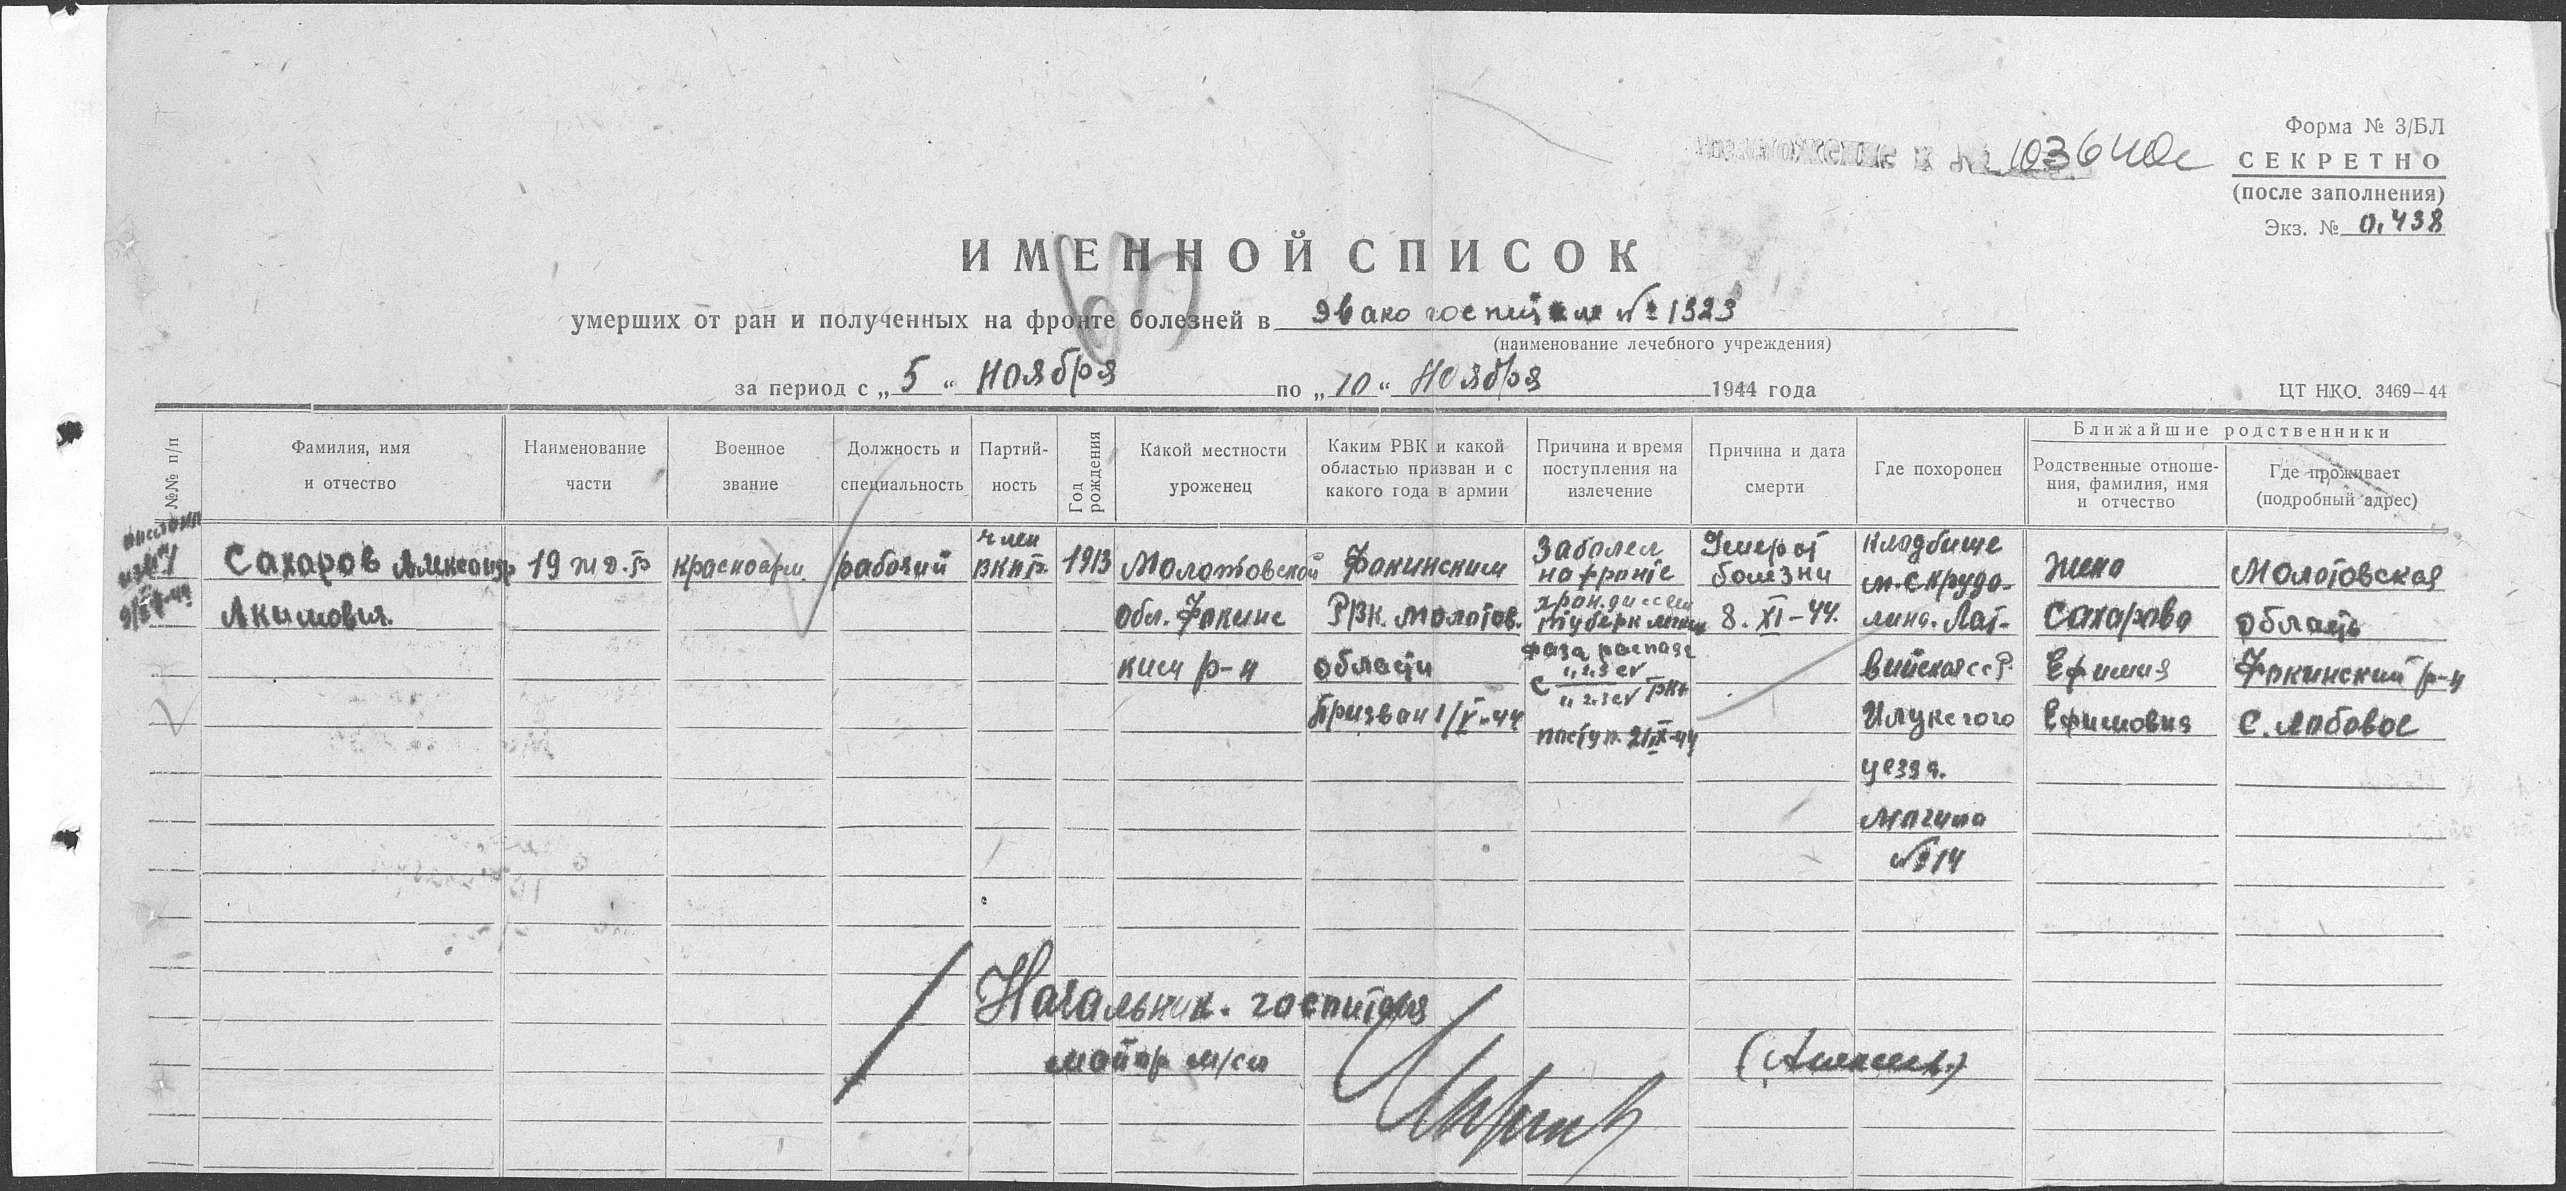 Форма № 3/БЛ
№ 103640с
СЕКРЕТНО
(после заполнения)
Экз. № 0,438
ИМЕННОЙ СПИСОК
умерших от ран и полученных на фронте болезней в Эвакогоспитал №1323
(наименование лечебного учреждения)
за период с „ 5 “ ноября по „ 10 “ ноября 1944 года
ЦТ НКО. 3469—44
№№ п/п
Фамилия, имя
и отчество
Наименование
части
Военное
звание
Должность и
специальность
Партий-
ность
Год
рождения
Какой местности
уроженец
Каким РВК и какой
областью призван и с
какого года в армии
Причина и время
поступления на
излечение
Причина и дата
смерти
Где похоронен
Ближайшие родственники
Родственные отноше-
ния, фамилия, имя
и отчество
Где проживает
(подробный адрес)
Сахаров Александр
Акимович.
19 ж.д.
красноарм.
рабочий
член
ВКПб.
1913
Молотовской
обл. Фокинс
ким р-н
Фокинским
РВК. Молотов.
области
Призван 1/V-44
Заболел
на фронте
туберкулезом
фаза распада
поступ. 21/IX-44
Умер от
болезни
8. XI-44.
Кладбище
м. Скрудо-
лино. Лат-
вийская ССР.
Илукстого
уезда.
Могила
№ 14
жена
Сахарова
Ефимия
Ефимовна
Молотовская
область
Фокинский р-н
с. Лобовое
Начальник. госпиталя
майор м/сл